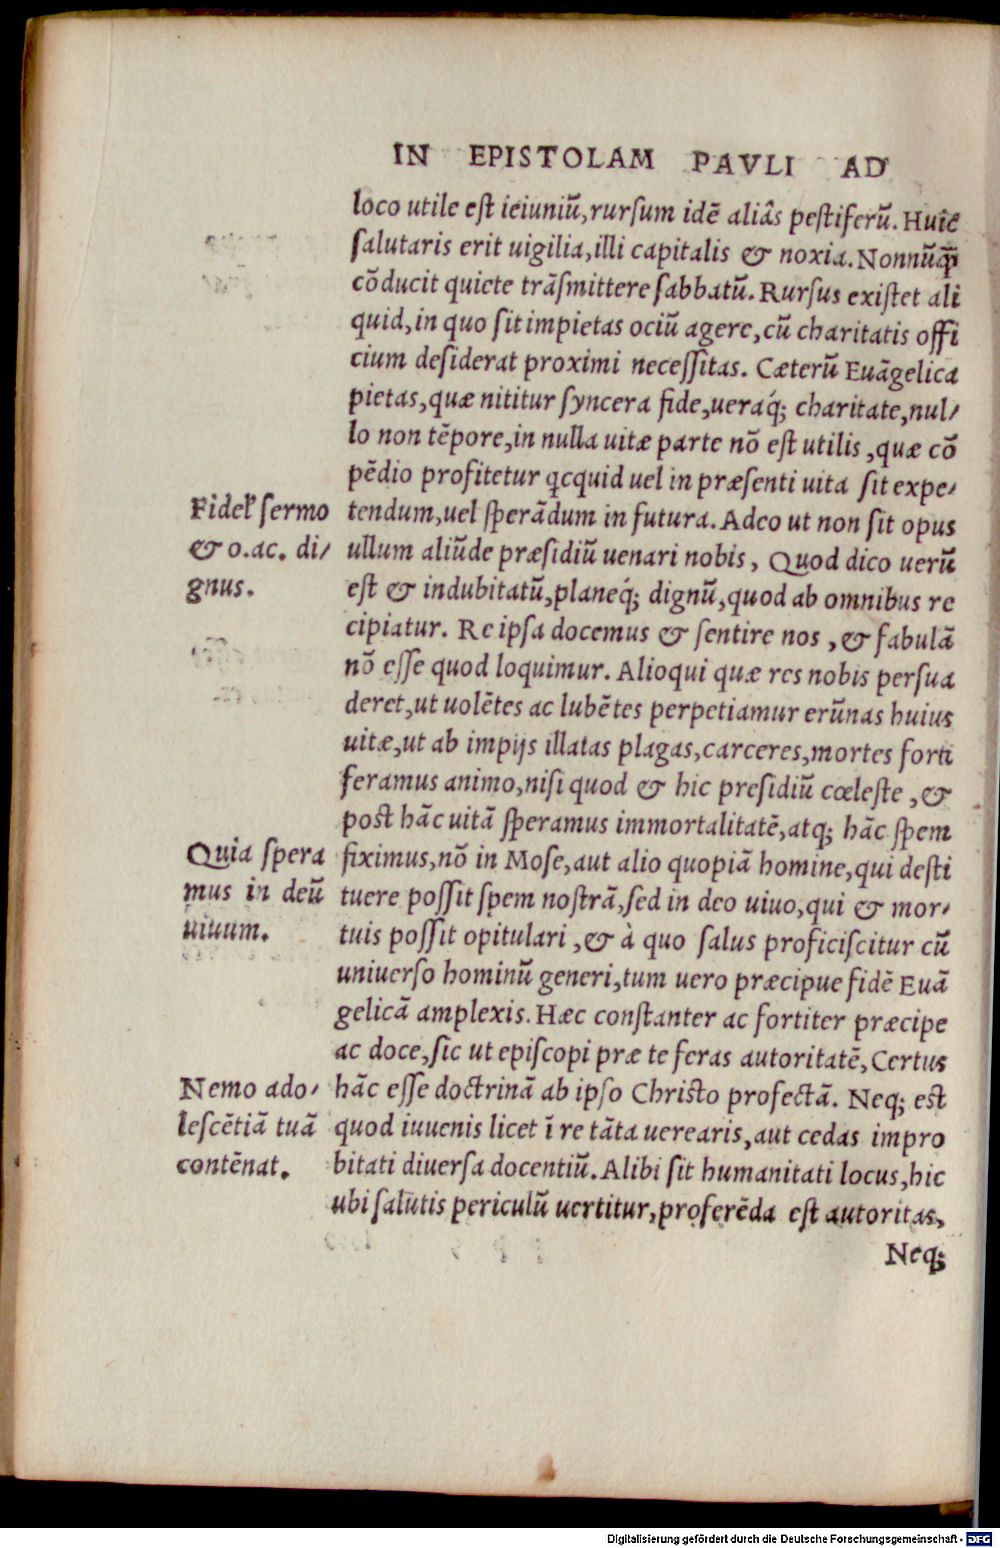 IN EPISTOLAM PAVLI AD
loco utile eſt ieiuniũ,rurſum idẽ aliâs peſtiferũ. Huic
ſalutaris erit uigilia,illi capitalis & noxia. Nonnũꝗ̃
cõducit quiete trãſmittere ſabbatũ. Rurſus exiſtet ali
quid,in quo ſit impietas ociũ agere,cũ charitatis offi
cium deſiderat proximi neceſſitas. Cæterũ Euãgelica
pietas,quæ nititur ſyncera fide,ueraq́; charitate,nul/
lo non tẽpore,in nulla uitæ parte nõ eſt utilis ,quæ cõ
pẽdio profitetur qcquid uel in præſenti uita ſit expe/
Fidel' ſermo
& o.ac. di/
gnus.
tendum,uel ſperãdum in futura. Adeo ut non ſit opus
ullum aliũde præſidiũ uenari nobis, Quod dico uerũ
eſt & indubitatũ,planeq́; dignũ,quod ab omnibus re
cipiatur. Re ipſa docemus & ſentire nos ,& fabulã
nõ eſſe quod loquimur. Alioqui quæ res nobis perſua
deret,ut uolẽtes ac lubẽtes perpetiamur erũnas huius
uitæ,ut ab impijs illatas plagas,carceres,mortes forti
feramus animo,niſi quod & hic preſidiũ cœleſte ,&
poſt hãc uitã ſperamus immortalitatẽ,atq; hãc ſpem
Quia ſpera
mus in deũ
uiuum.
fiximus,nõ in Moſe,aut alio quopiã homine,qui deſti
tuere poſſit ſpem noſtrã,ſed in deo uiuo,qui & mor/
tuis poſſit opitulari ,& à quo ſalus proficiſcitur cũ
uniuerſo hominũ generi,tum uero præcipue fidẽ Euã
gelicã amplexis. Hæc conſtanter ac fortiter præcipe
ac doce,ſic ut epiſcopi præ te feras autoritatẽ, Certus
Nemo ado/
leſcẽtiã tuã
contẽnat.
hãc eſſe doctrinã ab ipſo Chriſto profectã. Neq; eſt
quod iuuenis licet ĩ re tãta uerearis,aut cedas impro
bitati diuerſa docentiũ. Alibi ſit humanitati locus,hic
ubi ſalutis periculũ uertitur,proferẽda eſt autoritas,
Neq;
Digitalisierung gefördert durch die Deutsche Forschungsgemeinschaft - DFG